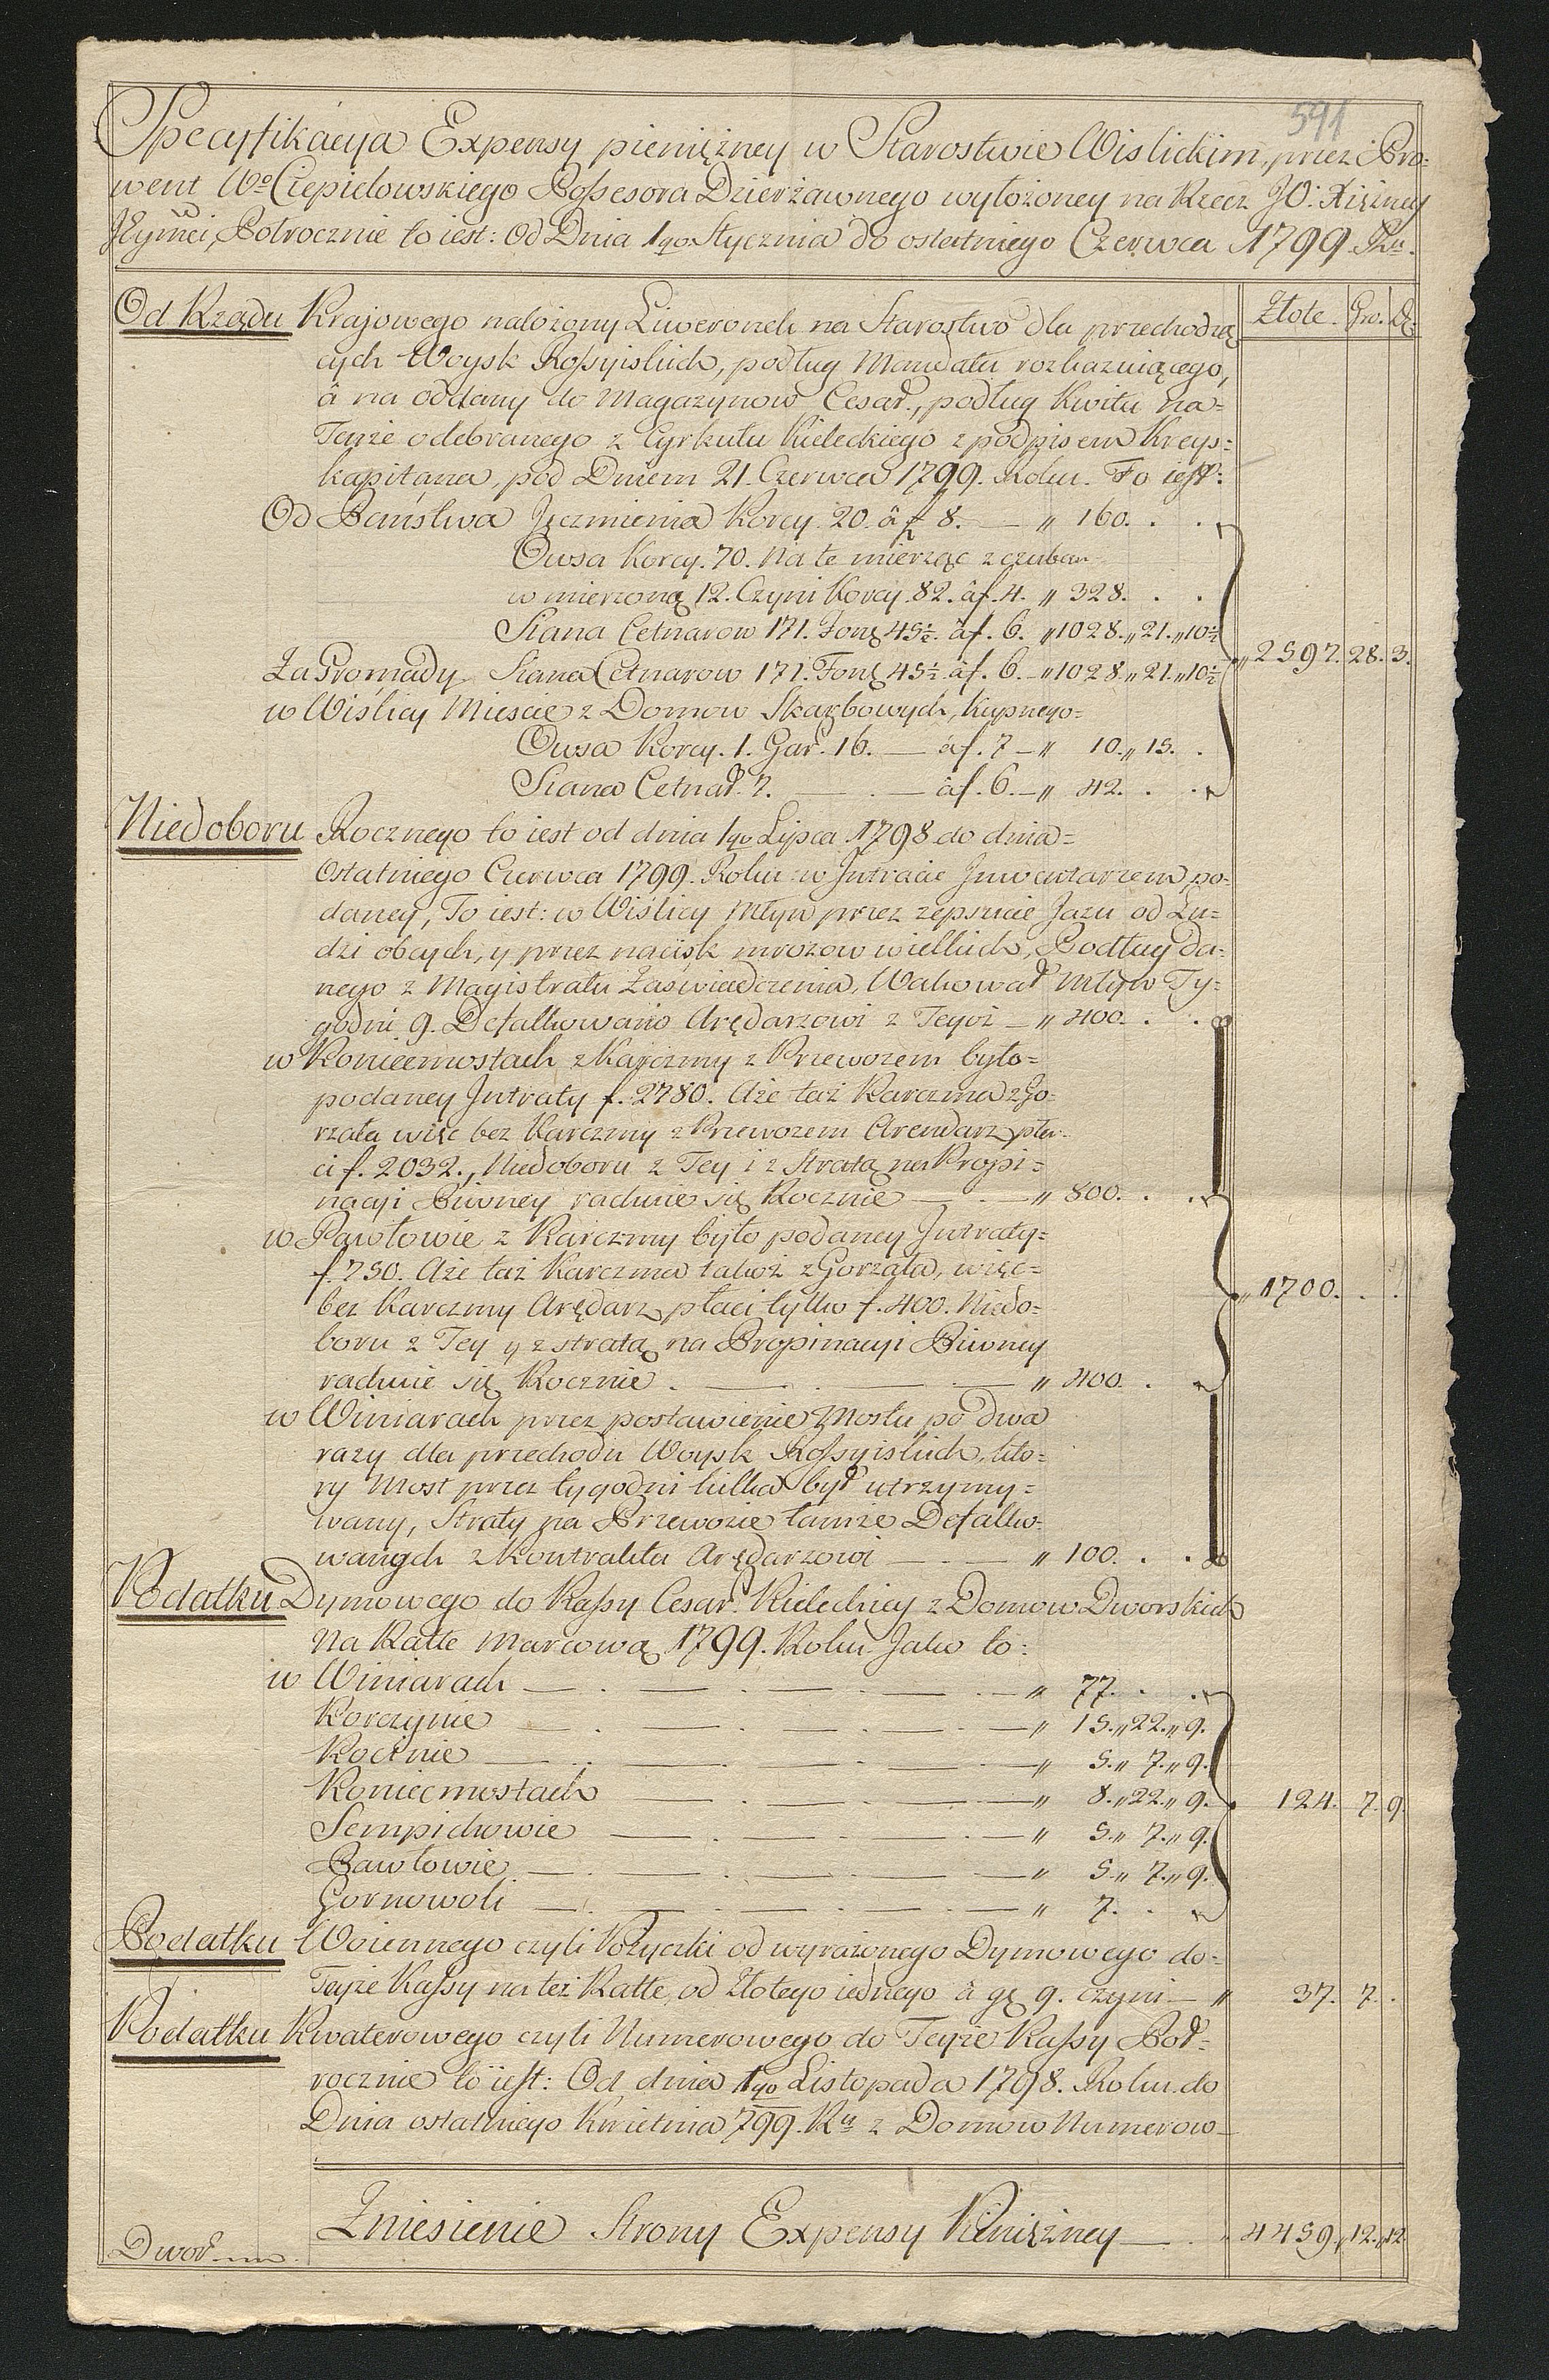 591
Specyfikacyia Expensy pieniężney w Starostwie Wislickim, przez Pro=
went Wo Ciepielowskiego Possesora Dzierżawnego wyłożoney na Rzecz JO: Xiężney
Jeymci, Połrocznie to iest: Od Dnia 1go Stycznia do ostatniego Czerwca 1799 Rku.
Złote. Gro. De:
Od Rządu Krajowego nałożony Liwerunek na Starostwo dla przechodzą
cych Woysk Rossyiskich, podług Mandatu rozkazuiącego,
â na oddany do Magazynow Cesar., podług Kwitu na=
Tenże odebranego z Cyrkułu Kieleckiego z podpisem Kreys=
kapitana, pod Dniem 21. Czerwca 1799. Roku. To iest:
Od Państwa Jęczmienia Korcy. 20. â f 8. — „ 160. . .
Owsa Korcy. 70. Na te mierząc z czubem
wmierzono 12. Czyni Korcy. 82. âf. 4. „ 328. . .
Siana Cetnarow 171. Font 45½. âf. 6. „1028.„21.„10½
Za Gromady Siana Cetnarow 171. Font 45½ âf. 6. — „1028.„21.„10½
„2597. 28. 3.
w Wiślicy Mieście z Domow Skarbowych, kupnego=
Owsa Korcy. 1. Gar. 16. — âf. 7 — „ 10.„15. .
Siana Cetnar. 7. — . — âf. 6. — „ 42. . .
Niedoboru Rocznego to iest od dnia 1go Lipca 1798 do dnia=
Ostatniego Czerwca 1799. Roku w Jntracie Jnwentarzem po=
daney, To iest: w Wiślicy Młyn przez zepsucie Jazu od Lu=
dzi obcych, y przez nacisk mrozow wielkich, Podług Da=
nego z Magistratu Zaświadczenia, Wakował Młyn Ty=
godni 9. Defalkowano Arędarzowi z Teyoż — „ 400. . .
w Koniecmostach z Karczmy z Przewozem było=
podaney Jntraty f. 2780. Aże taż Karczma zGo=
rzała więc bez Karczmy z Przewozem Arendarz pła=
ci f. 2032., Niedoboru z Tey i z Stratą na Propi=
nacyi Piwney rachuie się Rocznie — . — „ 800. . .
w Pawłowie z Karczmy było podaney Jntraty=
f. 750. Aże taż Karczma takoż zGorzała, więc=
„1700. . .
bez Karczmy Arędarz płaci tylko f. 400. Niedo=
boru z Tey y z stratą na Propinacyi Piwney
rachuie się Rocznie . — . — — „ 400. .
w Winiarach przez postawienie Mostu po dwa
razy dla przechodu Woysk Rossyiskich, kto=
ry Most przez tygodni kilka był utrzymy=
wany, Straty na Przewozie tamże Defalko=
wanych z Kontraktu Arędarzowi — . — „ 100. . .
Podatku Dymowego do Kassy Cesar. Kieleckiey z Domow Dworskich
Na Ratte Marcową 1799. Roku. Jako to:
w Winiarach — . — . — . — . — „ 77. . .
Korczynie — . — . — . — . — „ 15.„22.„9.
Kocinie — . — . — . — . — „ 5.„ 7.„9.
Koniecmostach — . — . — . — „ 8.„22.„9.
124. 7. 9.
Sempichowie — . — . — . — „ 5.„ 7.„9.
Pawłowie — . — . — . — . — „ 5.„ 7.„9.
Gornowoli — . — . — . — . — „ 7. . .
Podatku Woiennego czyli Pożyczki od wyrażonego Dymowego do=
Teyże Kassy na też Ratte, od Złotego iednego â gę 9. czyni — „ 37. 7. .
Podatku Kwaterowego czyli Numerowego do Teyże Kassy Poł=
rocznie to iest: Od dnia 1go Listopada 1798. Roku. do
Dnia ostatniego Kwietnia 799. Ru z Domow Numerow—
Zniesienie Strony Expensy Pieniężney — . „ 4459.„12.„12.
Dwor—